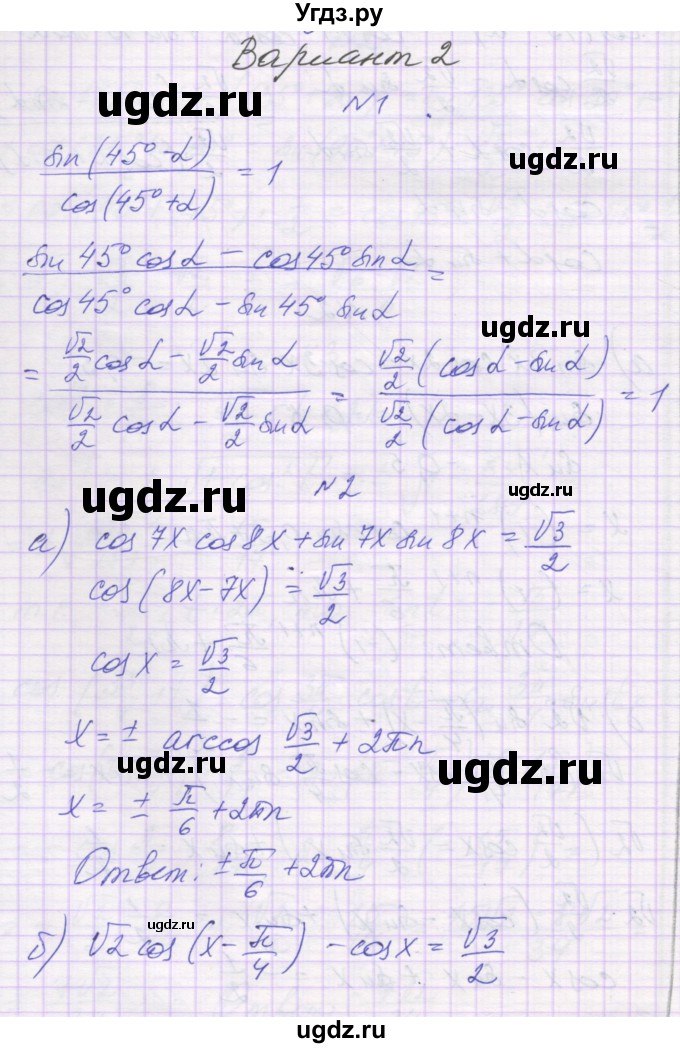 Угдз.ру
Вариант 2
ugdz.ru
N1
ugdz.ru
sin(45°-α)/cos(45°+α) = 1
(sin 45° cosα - cos45° sinα)/(cos45° cosα - sin 45° sinα) =
ugdz.ru
= (√2/2 cosα - √2/2 sinα)/(√2/2 cosα - √2/2 sinα) = (√2/2 (cosα - sinα))/(√2/2 (cosα - sinα)) = 1
N2
ugdz.ru ugdz.ru
а) cos 7x cos 8x + sin 7x sin 8x = √3/2
cos(8x - 7x) = √3/2
ugdz.ru
cos x = √3/2
x = ± arccos √3/2 + 2πn
ugdz.ru ugdz.ru
x = ± π/6 + 2πn
Ответ: ± π/6 + 2πn
ugdz.ru
б) √2 cos(x - π/4) - cos x = √3/2
ugdz.ru
ugdz.ru